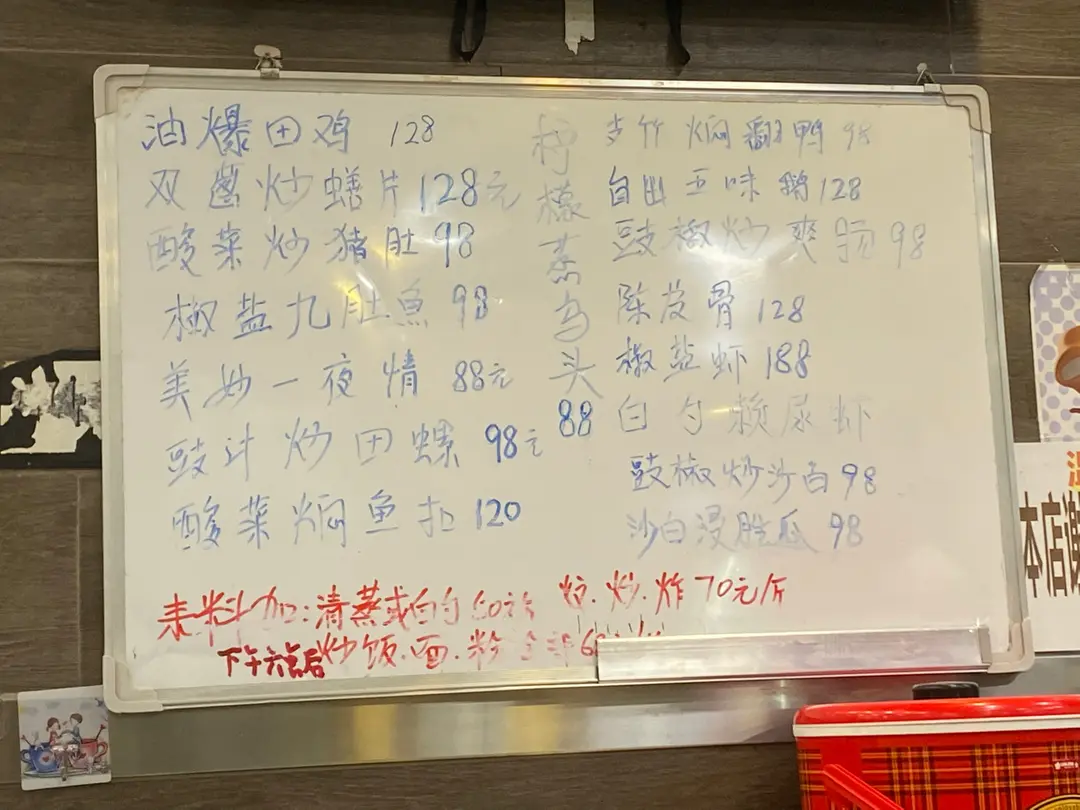 油爆田鸡 128
双茜炒蟮片 128元
酸菜炒猪肚 98
椒盐九肚魚 98
美妙一夜情 88元
豉汁炒田螺 98元
酸菜焖鱼扣 120
柠檬蒸乌头 88
支竹焖翻鸭 98
自由五味鹅 128
豉椒炒爽 98
陈皮骨 128
椒盐虾 188
白勺赖尿虾
豉椒炒沙白 98
沙白浸胜瓜 98
来料加:清蒸或白勺60元 炆.炒.炸70元/斤
下午六点后炒饭.面.粉全部
本店谢